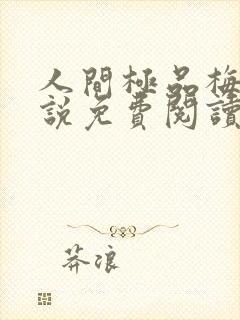 人間極品梅
說免費閱讀
莽浪